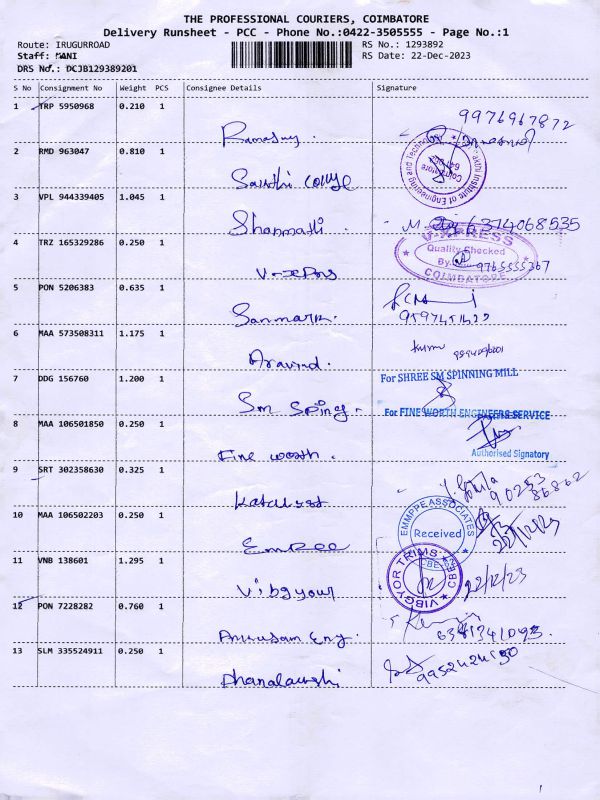 THE PROFESSIONAL COURIERS, COIMBATORE
Delivery Runsheet - PCC - Phone No.:0422-3505555 - Page No.:1
Route: IRUGURROAD
RS No.: 1293892
Staff: MANI
RS Date: 22-Dec-2023
DRS No.: DCJB129389201
S No Consignment No Weight PCS Consignee Details Signature
1 TRP 5950968 0.210 1
Ramasamy.
9976967872
2 RMD 963047 0.810 1
Sakthi College
Sakthi Institute of Engineering and Technology
Coimbatore
3 VPL 944339405 1.045 1
Shanmathi.
6374068535
4 TRZ 165329286 0.250 1
V-xpres
V-XPRESS
Quality Checked
By.
9765555367
COIMBATORE
5 PON 5206383 0.635 1
Sanmark.
6 MAA 573508311 1.175 1
Aravind.
7 DDG 156760 1.200 1
Sm Sping.
For SHREE SM SPINNING MILL
8 MAA 106501850 0.250 1
Fine worth.
For FINE WORTH ENGINEERS SERVICE
Authorised Signatory
9 SRT 302358630 0.325 1
90253
86862
10 MAA 106502203 0.250 1
Empee
EMMPPE ASSOCIATES
Received
CBE
22/12/23
11 VNB 138601 1.295 1
Vibgyour
VIBGYOR TRIMS
CBE
22/12/23
12 PON 7228282 0.760 1
6381341093.
13 SLM 335524911 0.250 1
Dhanalakshi
9952424190